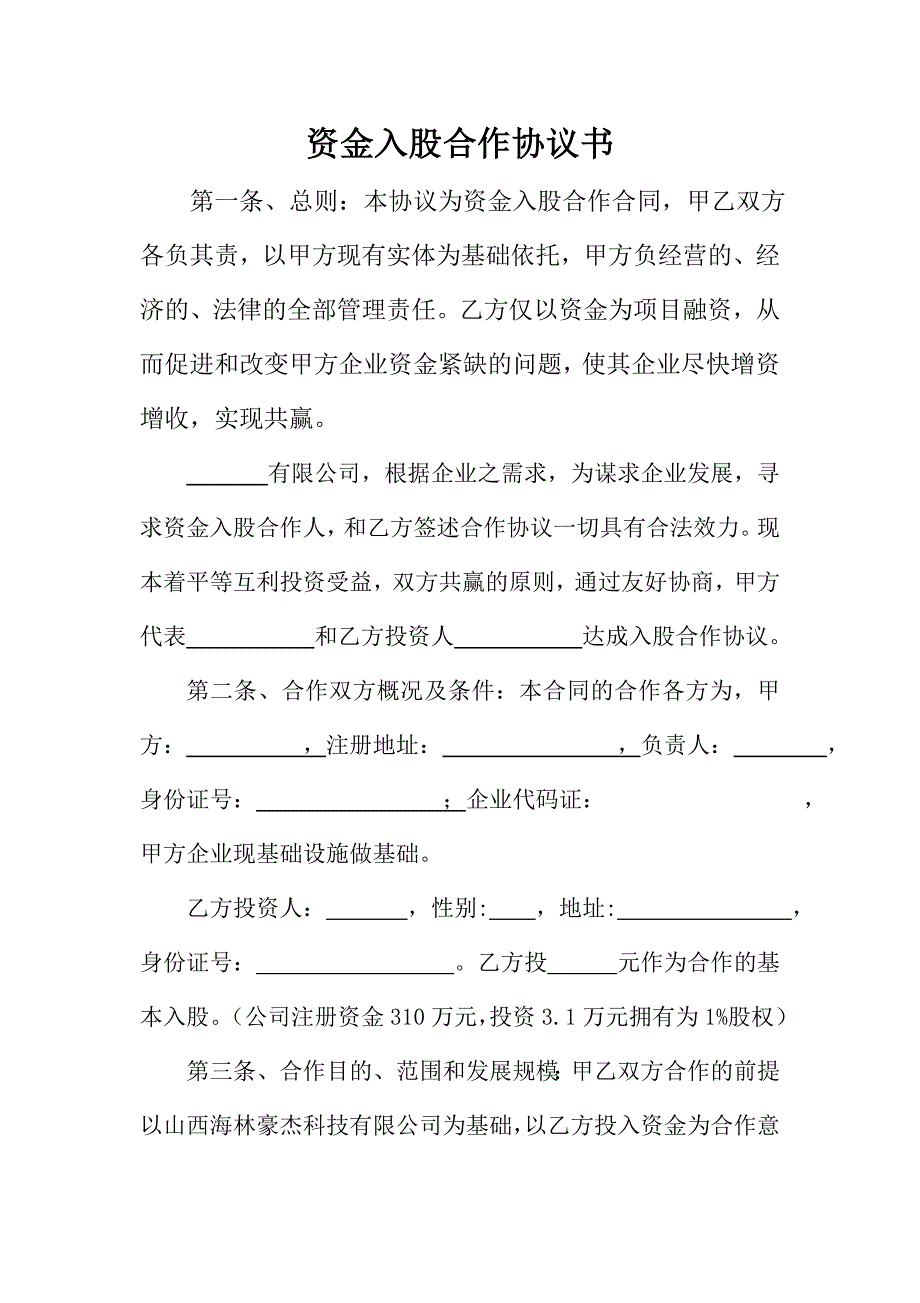 资金入股合作协议书
第一条、总则：本协议为资金入股合作合同，甲乙双方
各负其责，以甲方现有实体为基础依托，甲方负经营的、经
济的、法律的全部管理责任。乙方仅以资金为项目融资，从
而促进和改变甲方企业资金紧缺的问题，使其企业尽快增资
增收，实现共赢。
_______有限公司，根据企业之需求，为谋求企业发展，寻
求资金入股合作人，和乙方签述合作协议一切具有合法效力。现
本着平等互利投资受益，双方共赢的原则，通过友好协商，甲方
代表___________和乙方投资人___________达成入股合作协议。
第二条、合作双方概况及条件：本合同的合作各方为，甲
方：__________，注册地址：_______________，负责人：________，
身份证号：________________；企业代码证： ，
甲方企业现基础设施做基础。
乙方投资人：_______，性别:____，地址:_______________，
身份证号：_________________。乙方投______元作为合作的基
本入股。（公司注册资金310万元，投资3.1万元拥有为1%股权）
第三条、合作目的、范围和发展规模：甲乙双方合作的前提
以山西海林豪杰科技有限公司为基础，以乙方投入资金为合作意